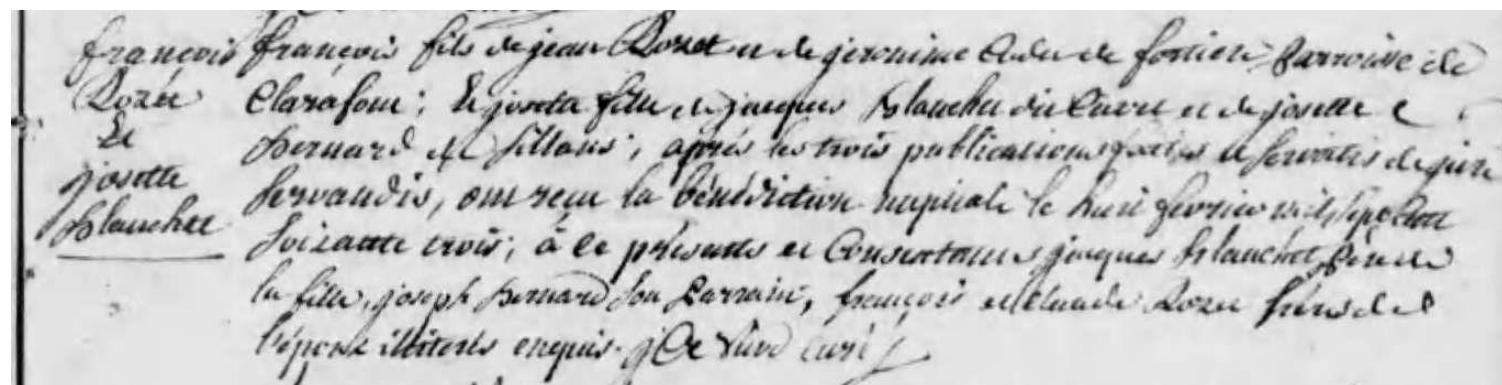 françois
Rozet
Et
josette
Blanchet
françois fils de jean Rozet et de jeronime de fortier Parroisse de
Clarafont; Et josette fille de jacques Blanchet du Cuare et de josette
Bernard de Sillans, après les trois publications faites et servatis de jure
servandis, ont reçu la bénédiction nuptiale le huit fevrier mil sept Cent
soixante trois; à ce présents et Consentants jacques Blanchet père de
la fille, joseph Bernard son Parrain, françois et Claude Rozet frères de
l'époux illiterés enquis. curé